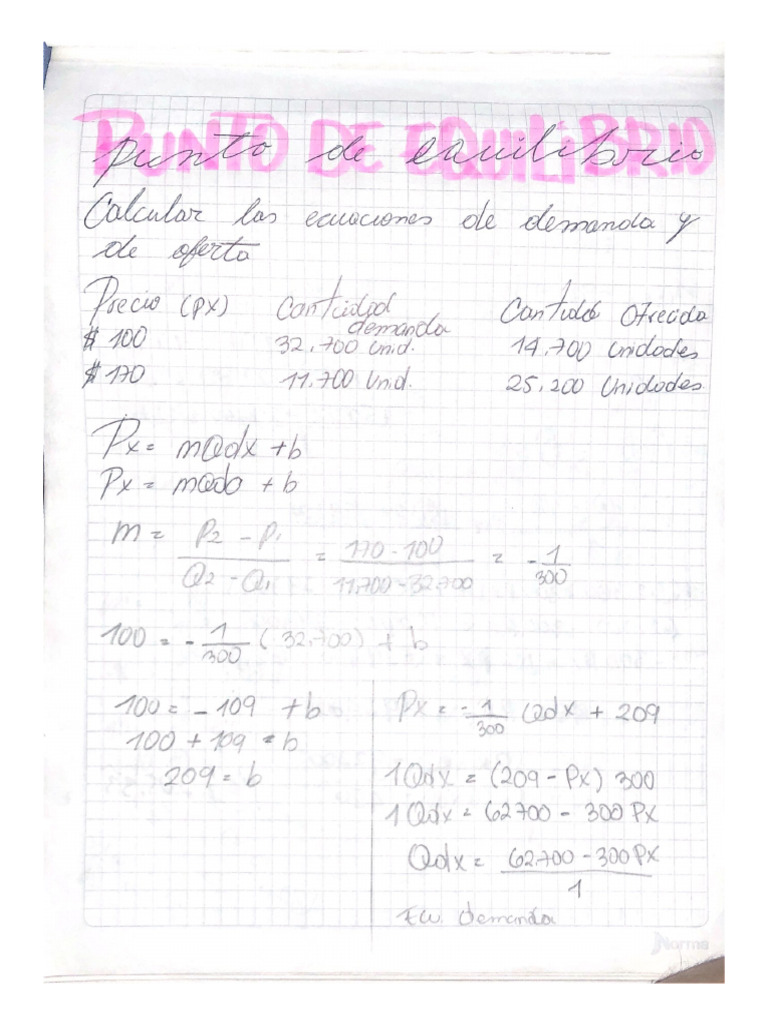 PUNTO DE EQUILIBRIO
punto de equilibrio
Calcular las ecuaciones de demanda y
de oferta
Precio (PX) Cantidad demanda Cantidad Ofrecida
$ 100 32.700 Unid. 14.700 Unidades
$ 170 11.700 Unid. 25.200 Unidades
Px = mQdx + b
Px = mQdo + b
m = P2 - P1 / Q2 - Q1 = 170 - 100 / 11.700 - 32.700 = - 1/300
100 = - 1/300 (32.700) + b
100 = - 109 + b
100 + 109 = b
209 = b
Px = - 1/300 Qdx + 209
1Qdx = (209 - Px) 300
1Qdx = 62700 - 300 Px
Qdx = 62.700 - 300 PX / 1
Ecu. demanda
Norma